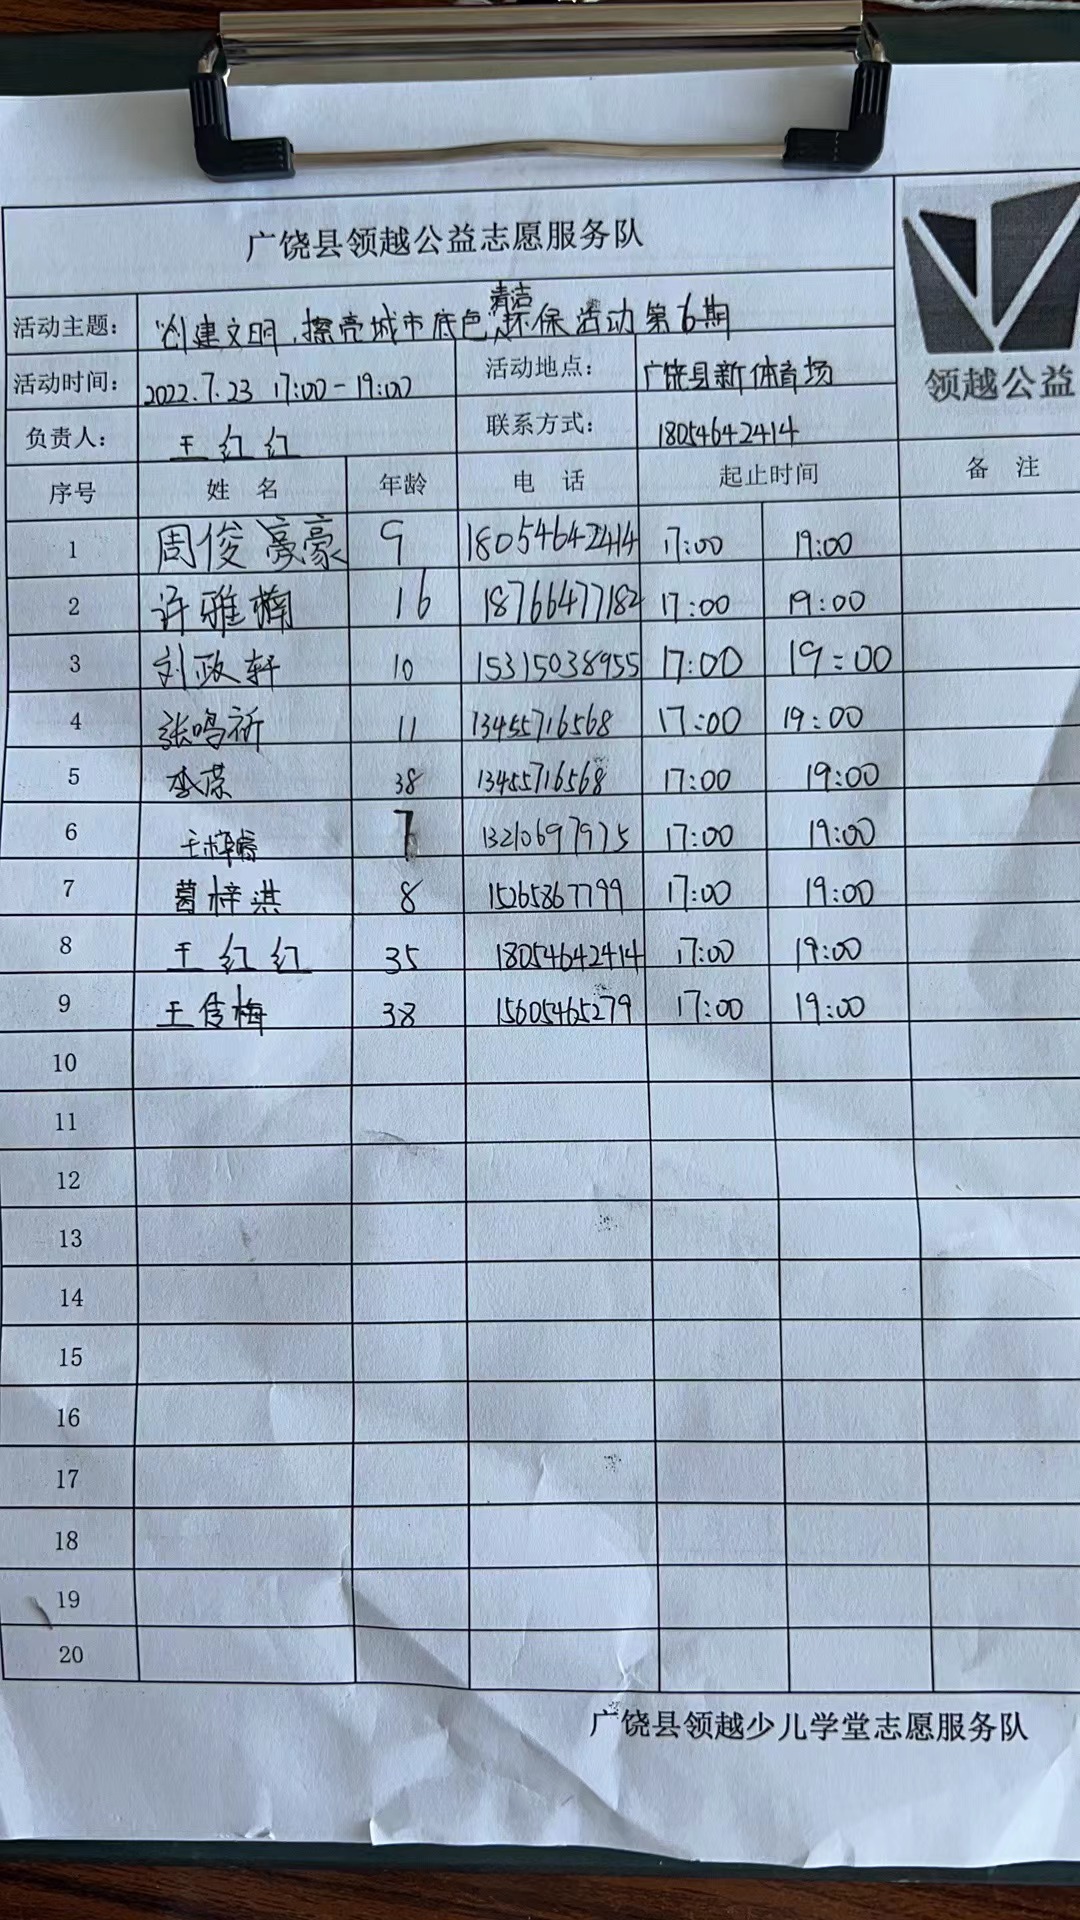 广饶县领越公益志愿服务队
领越公益
活动主题： 创建文明，擦亮城市底色清洁环保活动第6期
活动时间： 2022.7.23 17:00-19:00 活动地点： 广饶县新体育场
负责人： 王红红 联系方式： 18054642414
序号 姓名 年龄 电话 起止时间 备注
1 周俊豪 9 18054642414 17:00 19:00
2 许雅楠 16 18766477182 17:00 19:00
3 刘政轩 10 15315038955 17:00 19:00
4 张鸣祈 11 13455716568 17:00 19:00
5 李蕊 38 13455716568 17:00 19:00
6 王梓睿 7 13210697975 17:00 19:00
7 葛梓淇 8 15265867799 17:00 19:00
8 王红红 35 18054642414 17:00 19:00
9 王俊梅 38 15605465279 17:00 19:00
10
11
12
13
14
15
16
17
18
19
20
广饶县领越少儿学堂志愿服务队